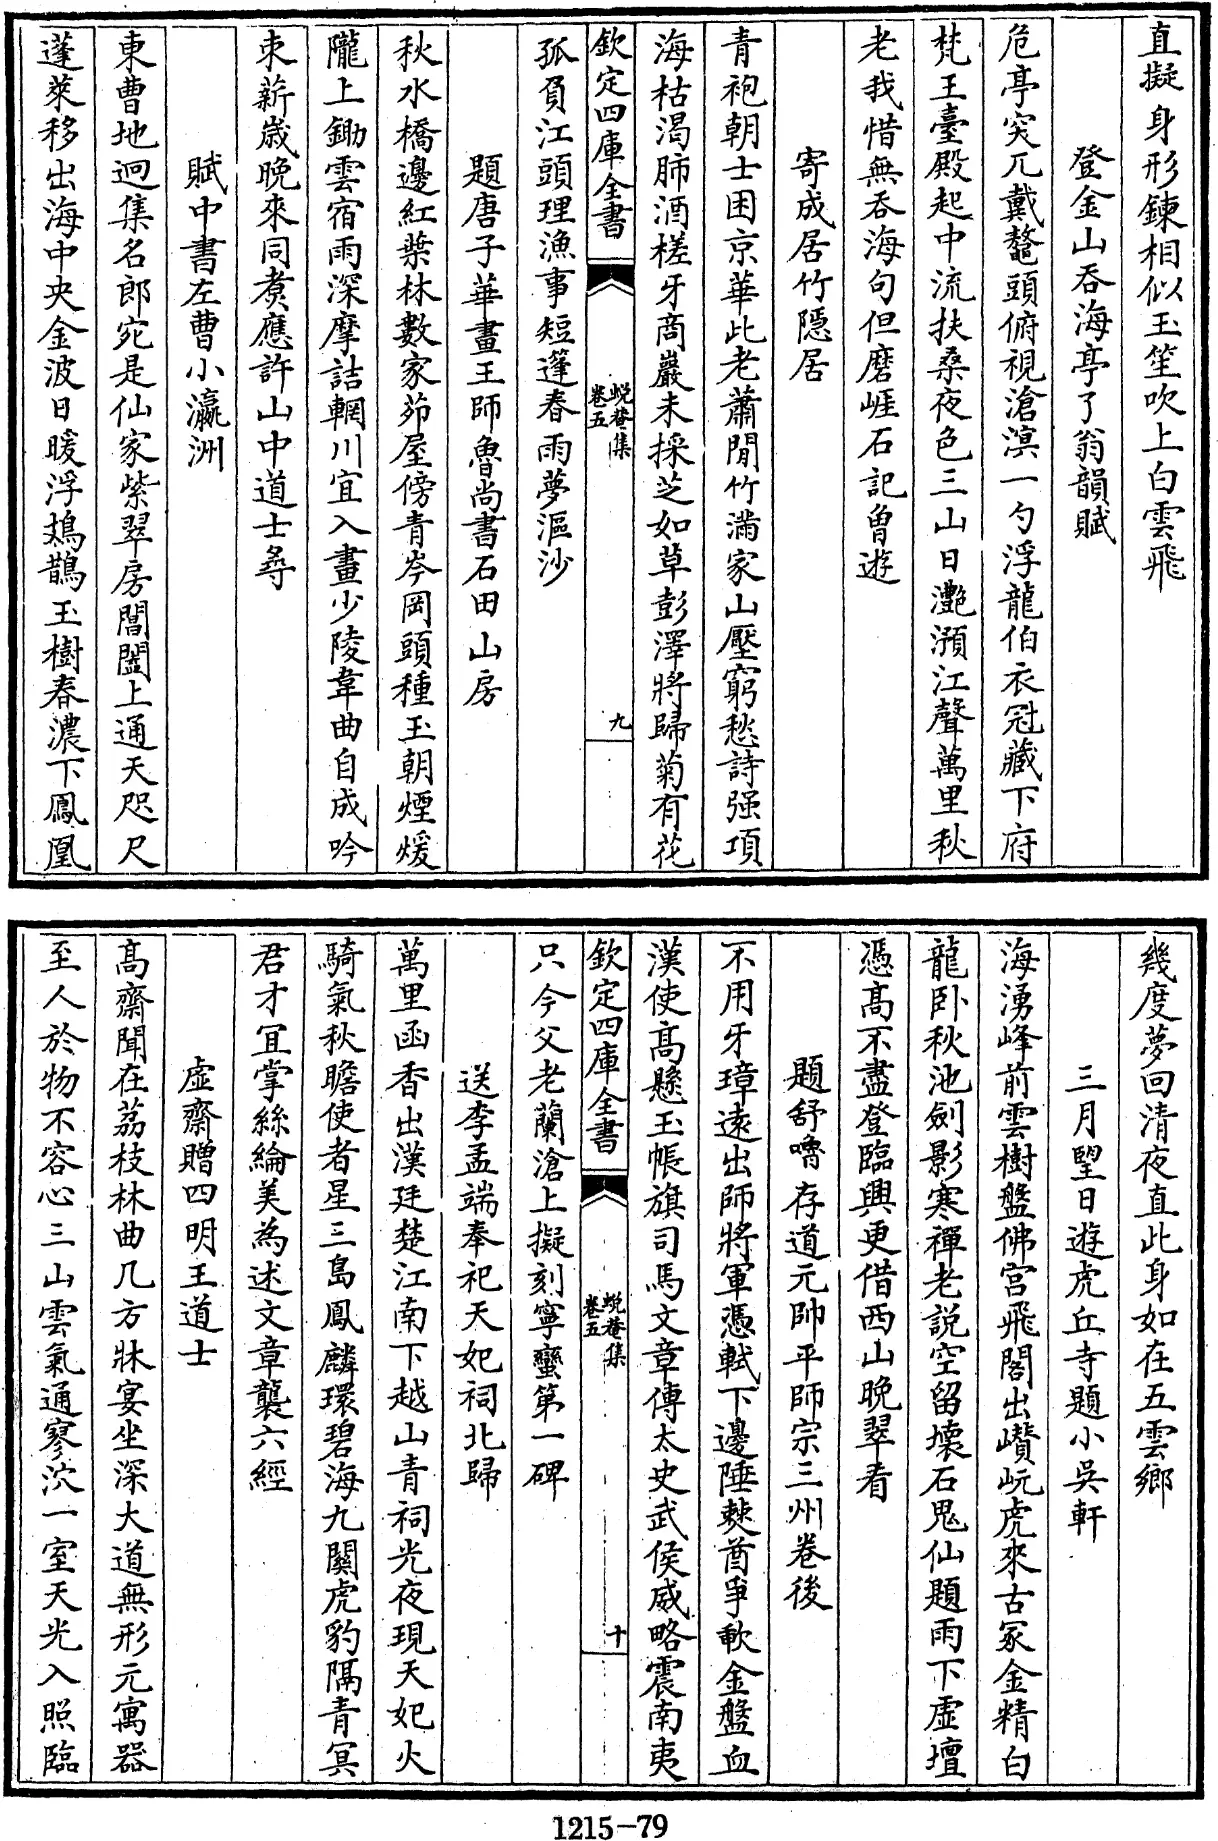 直擬身形鍊相似玉笙吹上白雲飛
登金山吞海亭了翁韻賦
危亭突兀戴鼇頭俯視滄溟一勺浮龍伯衣冠藏下府
梵王臺殿起中流扶桑夜色三山日灧澦江聲萬里秋
老我惜無吞海句但磨崖石記曾遊
寄成居竹隱居
青袍朝士困京華此老蕭閒竹滿家山壓窮愁詩强項
海枯渴肺酒槎牙商巖未採芝如草彭澤將歸菊有花
欽定四庫全書
蛻菴集
卷五
九
孤負江頭理漁事短篷春雨夢漚沙
題唐子華畫王師魯尚書石田山房
秋水橋邊紅葉林數家茆屋傍青岑岡頭種玉朝煙煖
隴上鋤雲宿雨深摩詰輞川宜入畫少陵韋曲自成吟
束薪歲晚來同煑應許山中道士尋
賦中書左曹小瀛洲
東曹地迥集名郎宛是仙家紫翠房閶闔上通天咫尺
蓬萊移出海中央金波日暖浮鳷鵲玉樹春濃下鳳凰
幾度夢回清夜直此身如在五雲鄉
三月望日遊虎丘寺題小吳軒
海湧峰前雲樹盤佛宫飛閣出巑岏虎來古冢金精白
龍卧秋池劍影寒禪老説空留壞石鬼仙題雨下虚壇
憑高不盡登臨興更借西山晚翠看
題舒嚕存道元帥平師宗三州卷後
不用牙璋遠出師將軍憑軾下邊陲僰酋爭歃金盤血
漢使高懸玉帳旗司馬文章傳太史武侯威略震南夷
欽定四庫全書
蛻菴集
卷五
十
只今父老蘭滄上擬刻寧蠻第一碑
送李孟端奉祀天妃祠北歸
萬里函香出漢廷楚江南下越山青祠光夜現天妃火
騎氣秋瞻使者星三島鳳麟環碧海九關虎豹隔青冥
君才宜掌絲綸美為述文章襲六經
虚齋贈四明王道士
高齋聞在荔枝林曲几方牀宴坐深大道無形元寓器
至人於物不容心三山雲氣通寥泬一室天光入照臨
1215-79